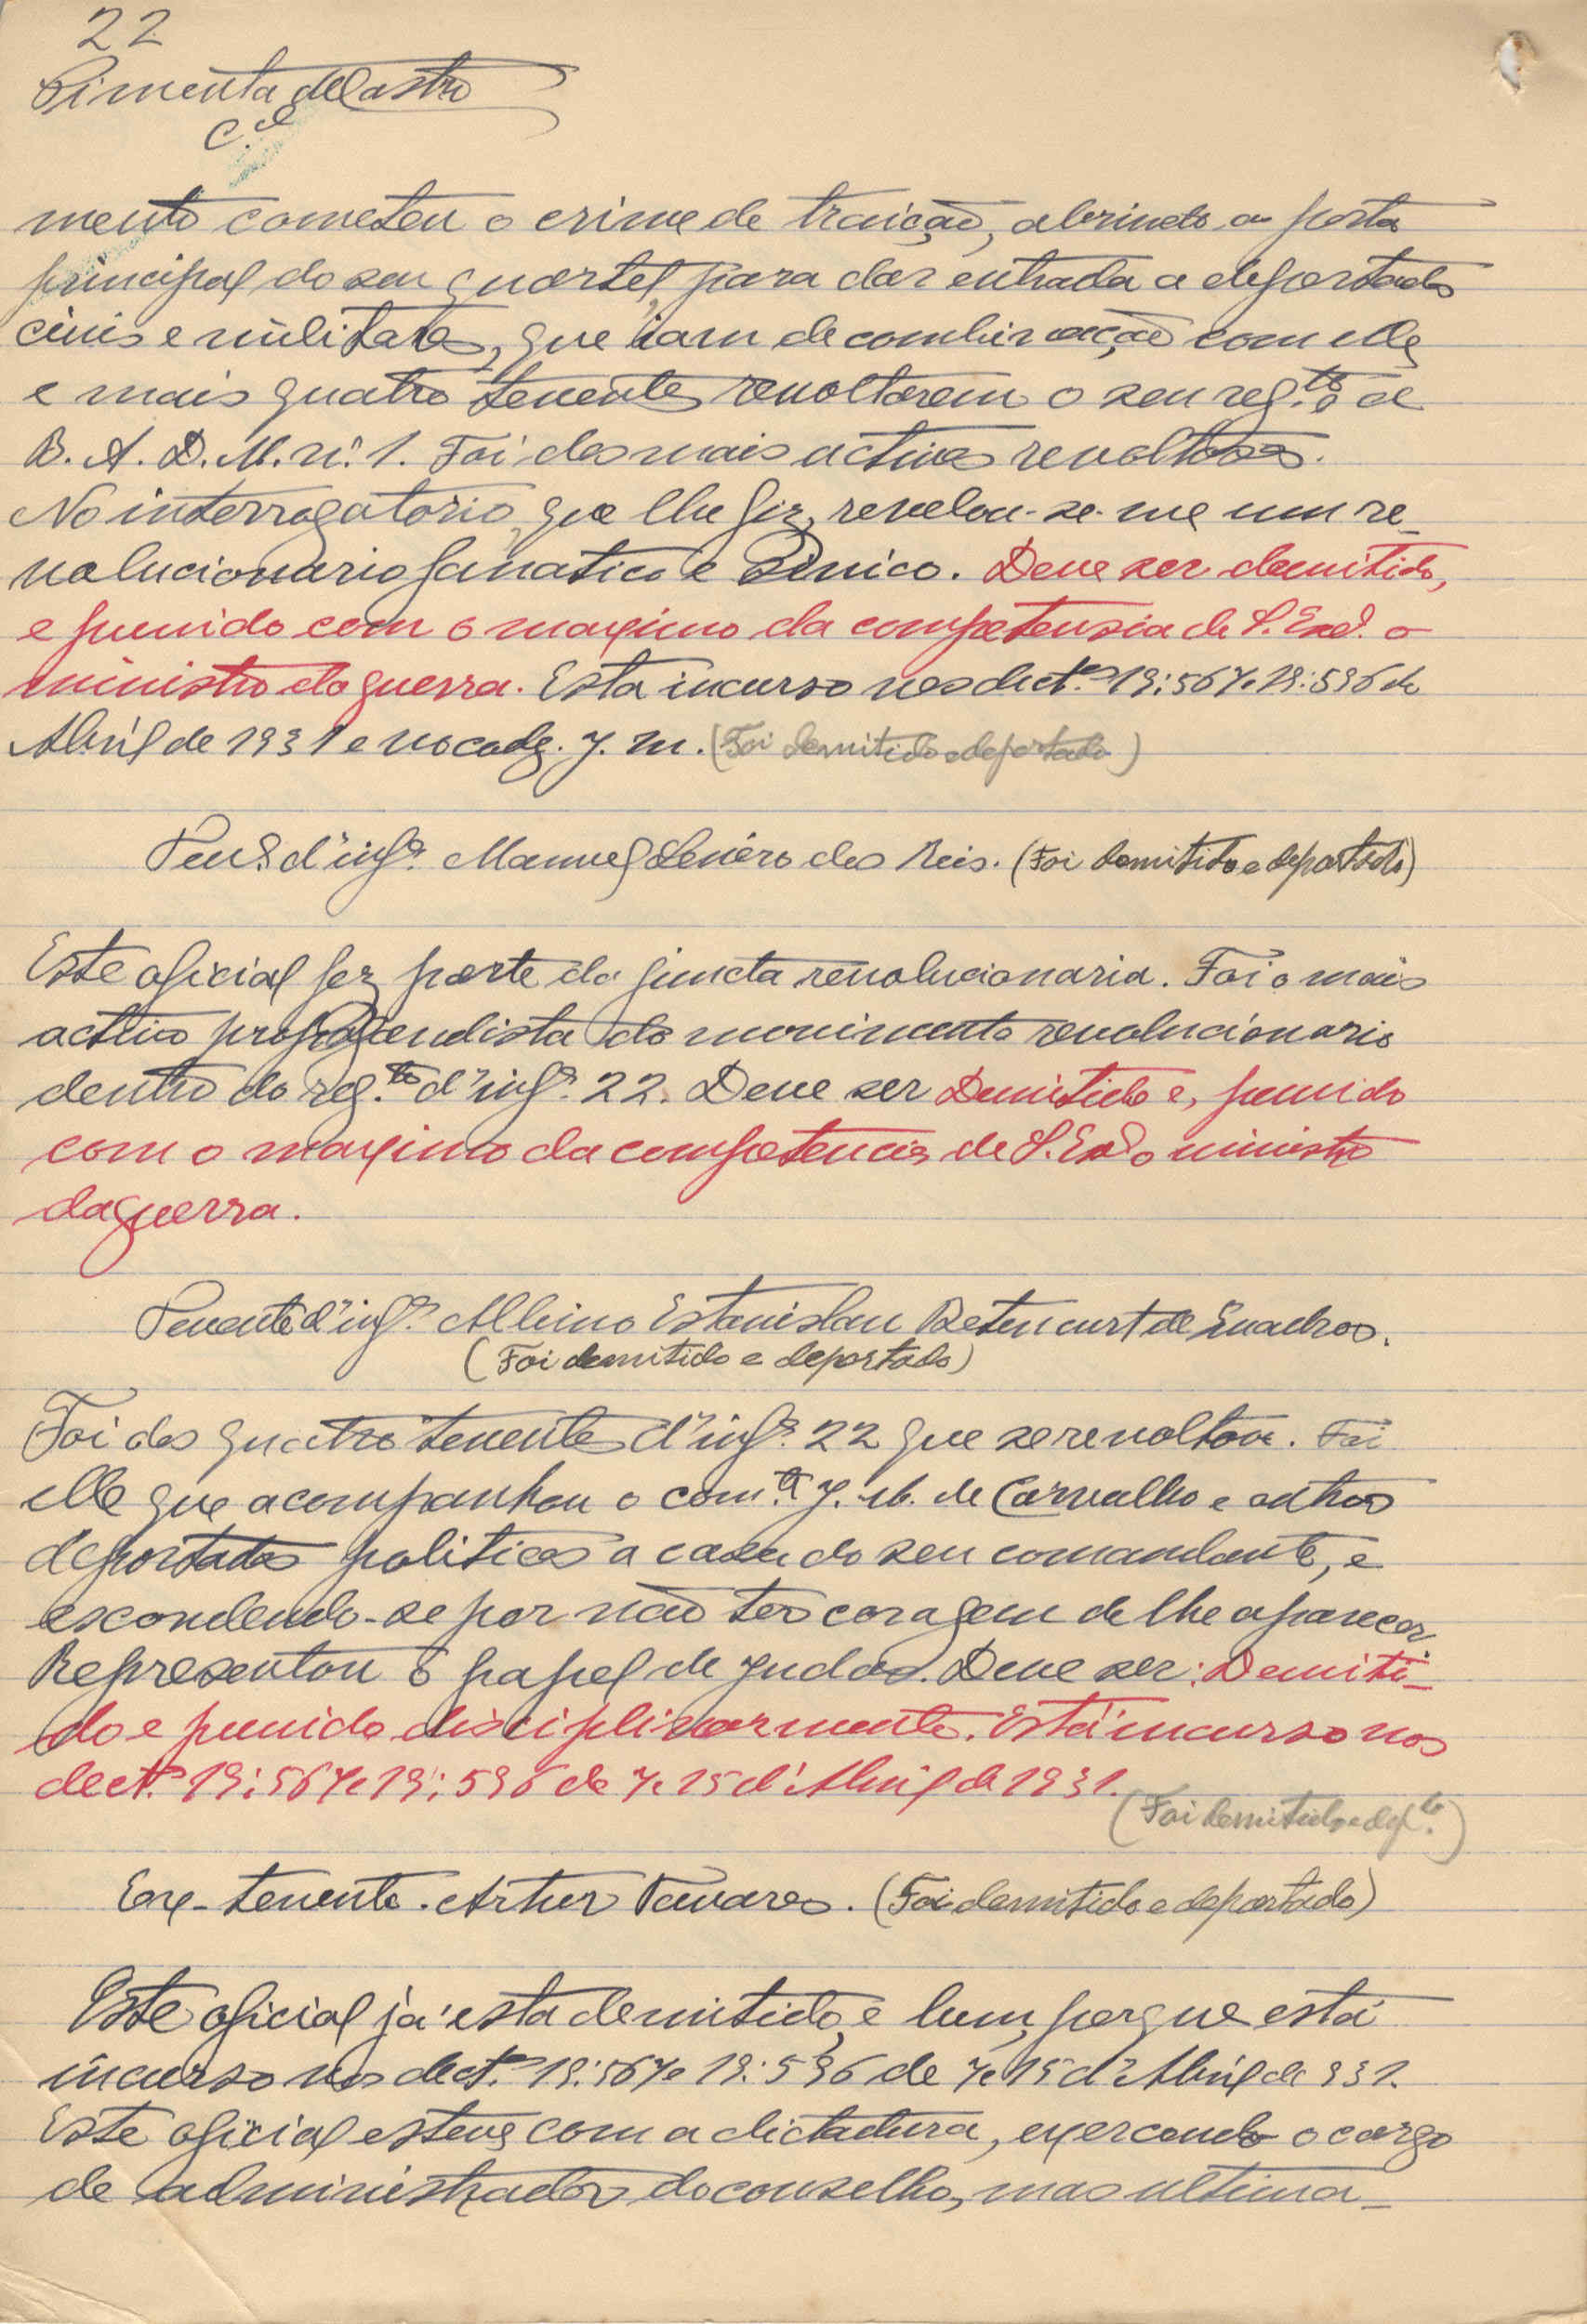 22
Pimenta de Castro
C.el
mento cometeu o crime de traição, abrindo a porta
principal do seu quartel, para dar entrada a deportados
civis e militares, que iam de combinação com elle
e mais quatro tenentes revoltarem o seu reg.to e a
B. A. D. M. n.º 1. Foi dos mais activos revoltosos.
No interrogatorio, que lhe fiz, revelou-se-me um re-
volucionario fanatico e cinico. Deve ser demitido,
e punido com o maximo da competensia de S. Exa. o
ministro da guerra. Esta incurso nos dect.os 19:567 e 19:596 de
Abril de 1931 e no codg. J. M. (Foi demitido e deportado)
Ten. d'inf.a Manuel dos Reis. (Foi demitido e deportado)
Este oficial fez parte da juncta revolucionaria. Foi o mais
activo propagandista do movimento revolucionario
dentro do reg.to d'inf.a 22. Deve ser Demitido e, punido
com o maximo da competencia de S. Exa o ministro
da guerra.
Tenente d'inf.a Albino Estanislau Betencurt de Quadros.
(Foi demitido e deportado)
Foi dos quatro tenentes d'inf.a 22 que se revoltou. Foi
elle que acompanhou o com.te J. M. de Carvalho e outros
deportados politicos a casa do seu comandante, e
escondendo-se por não ter coragem de lhe aparecer.
Representou o papel de Judas. Deve ser: Demiti-
do e punido disciplinarmente. Está incurso nos
dect.os 19:567 e 19:596 de 7 e 15 d'Abril de 1931.
(Foi demitido e dep.to)
Ex-tenente. Artur Tavares. (Foi demitido e deportado)
Este oficial já esta demitido, e bem, porque está
incurso nos dect.os 19:567 e 19:596 de 7 e 15 d'Abril de 931.
Este oficial esteve com a dictadura, exercendo o cargo
de administrador do conselho, mas ultima-